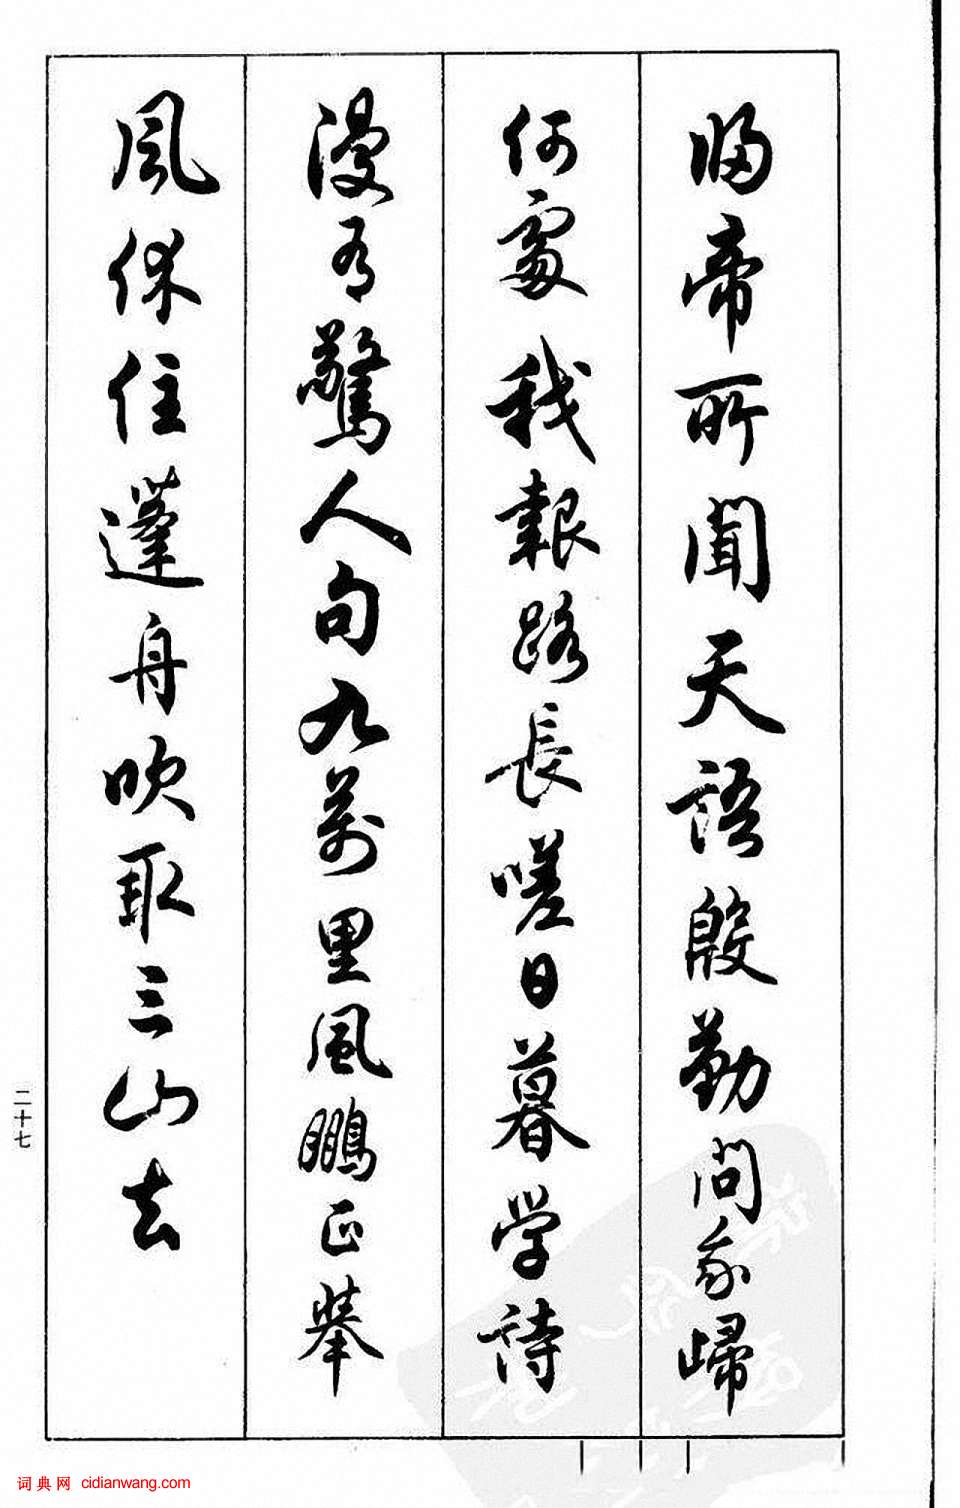 歸帝所聞天語殷勤問我歸
何處我報路長嗟日暮学詩
漫有驚人句九萬里風鵬正舉
風休住蓬舟吹取三山去
二十七
词典网 cidianwang.com